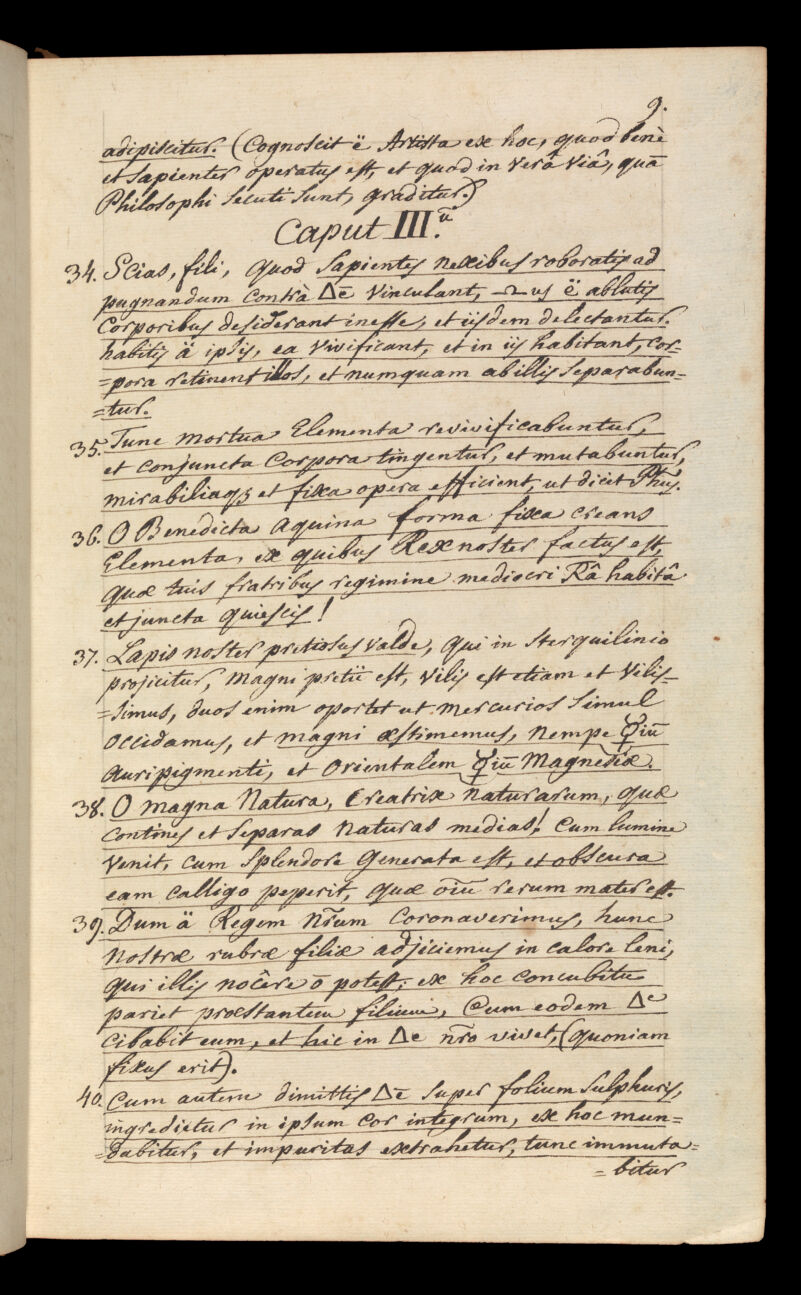 9.
adipiscitur. (Cognoscit ë Artista ex hoc, quod benè
et sapienter operatus est, et quod in verâ viâ, quā
Philosophi secuti sunt, graditur.)
Caput III.ū
34. Scias, fili, quod sapientes nexibus roboratis ad
pugnandum contrà △ē vinculant, us ë ablutis
corporibus desiderant inesse, et iisdem delectantur.
habitis ä ipsis, ea vivificant, et in iis habitant, cor-
=pora retinent illos, et numquam ab illis separabun-
=tur.
35. Tunc mortua Elementa revivificabuntur,
et conjuncta corpora tingentur, et mutabuntur,
mirabiliaq₃ et fixa opera efficient, ut dicit Phūs.
36. O Benedicta aquina forma fixa creans
Elementa, ex quibus Rex noster factus est,
quæ tuis fratribus regimine mediocri Râ habitâ
et juncta quiescis!
37. Lapis noster pretiosus valde, qui in sterquilinio
projicitur, magni pretii est, vilis est etiam et vilis-
=simus, duos enim oportet ut mercurios simul
occidamus, et magni æstimemus, nempe ☿iū
auripigmenti, et orientalem ☿iū Magnesiæ.
38. O magna Natura, Creatrix naturarum, quæ
contines et separas naturas medias! cum lumine
venit, cum splendore generata est, et obscura
eam calligo peperit, quæ oīū rerum mater est.
39. Dum ä Regem nr̄um coronaverimus, hunc
nostræ rubræ filiæ adjiciemus in calore leni,
qui illis nocêre ō potest, ex hoc concubitu
pariet præstantem filium, cum eodem △e
cibabit eum, et hic in △e nr̄o vivet, (quoniam
fixus erit).
40. Cum autem dimittis △ē super folium sulphuris,
ingredietur in ipsum cor integrum, ex hoc mun=
=dabitur, et impuritas extrahetur, tunc immuta=
=bitur